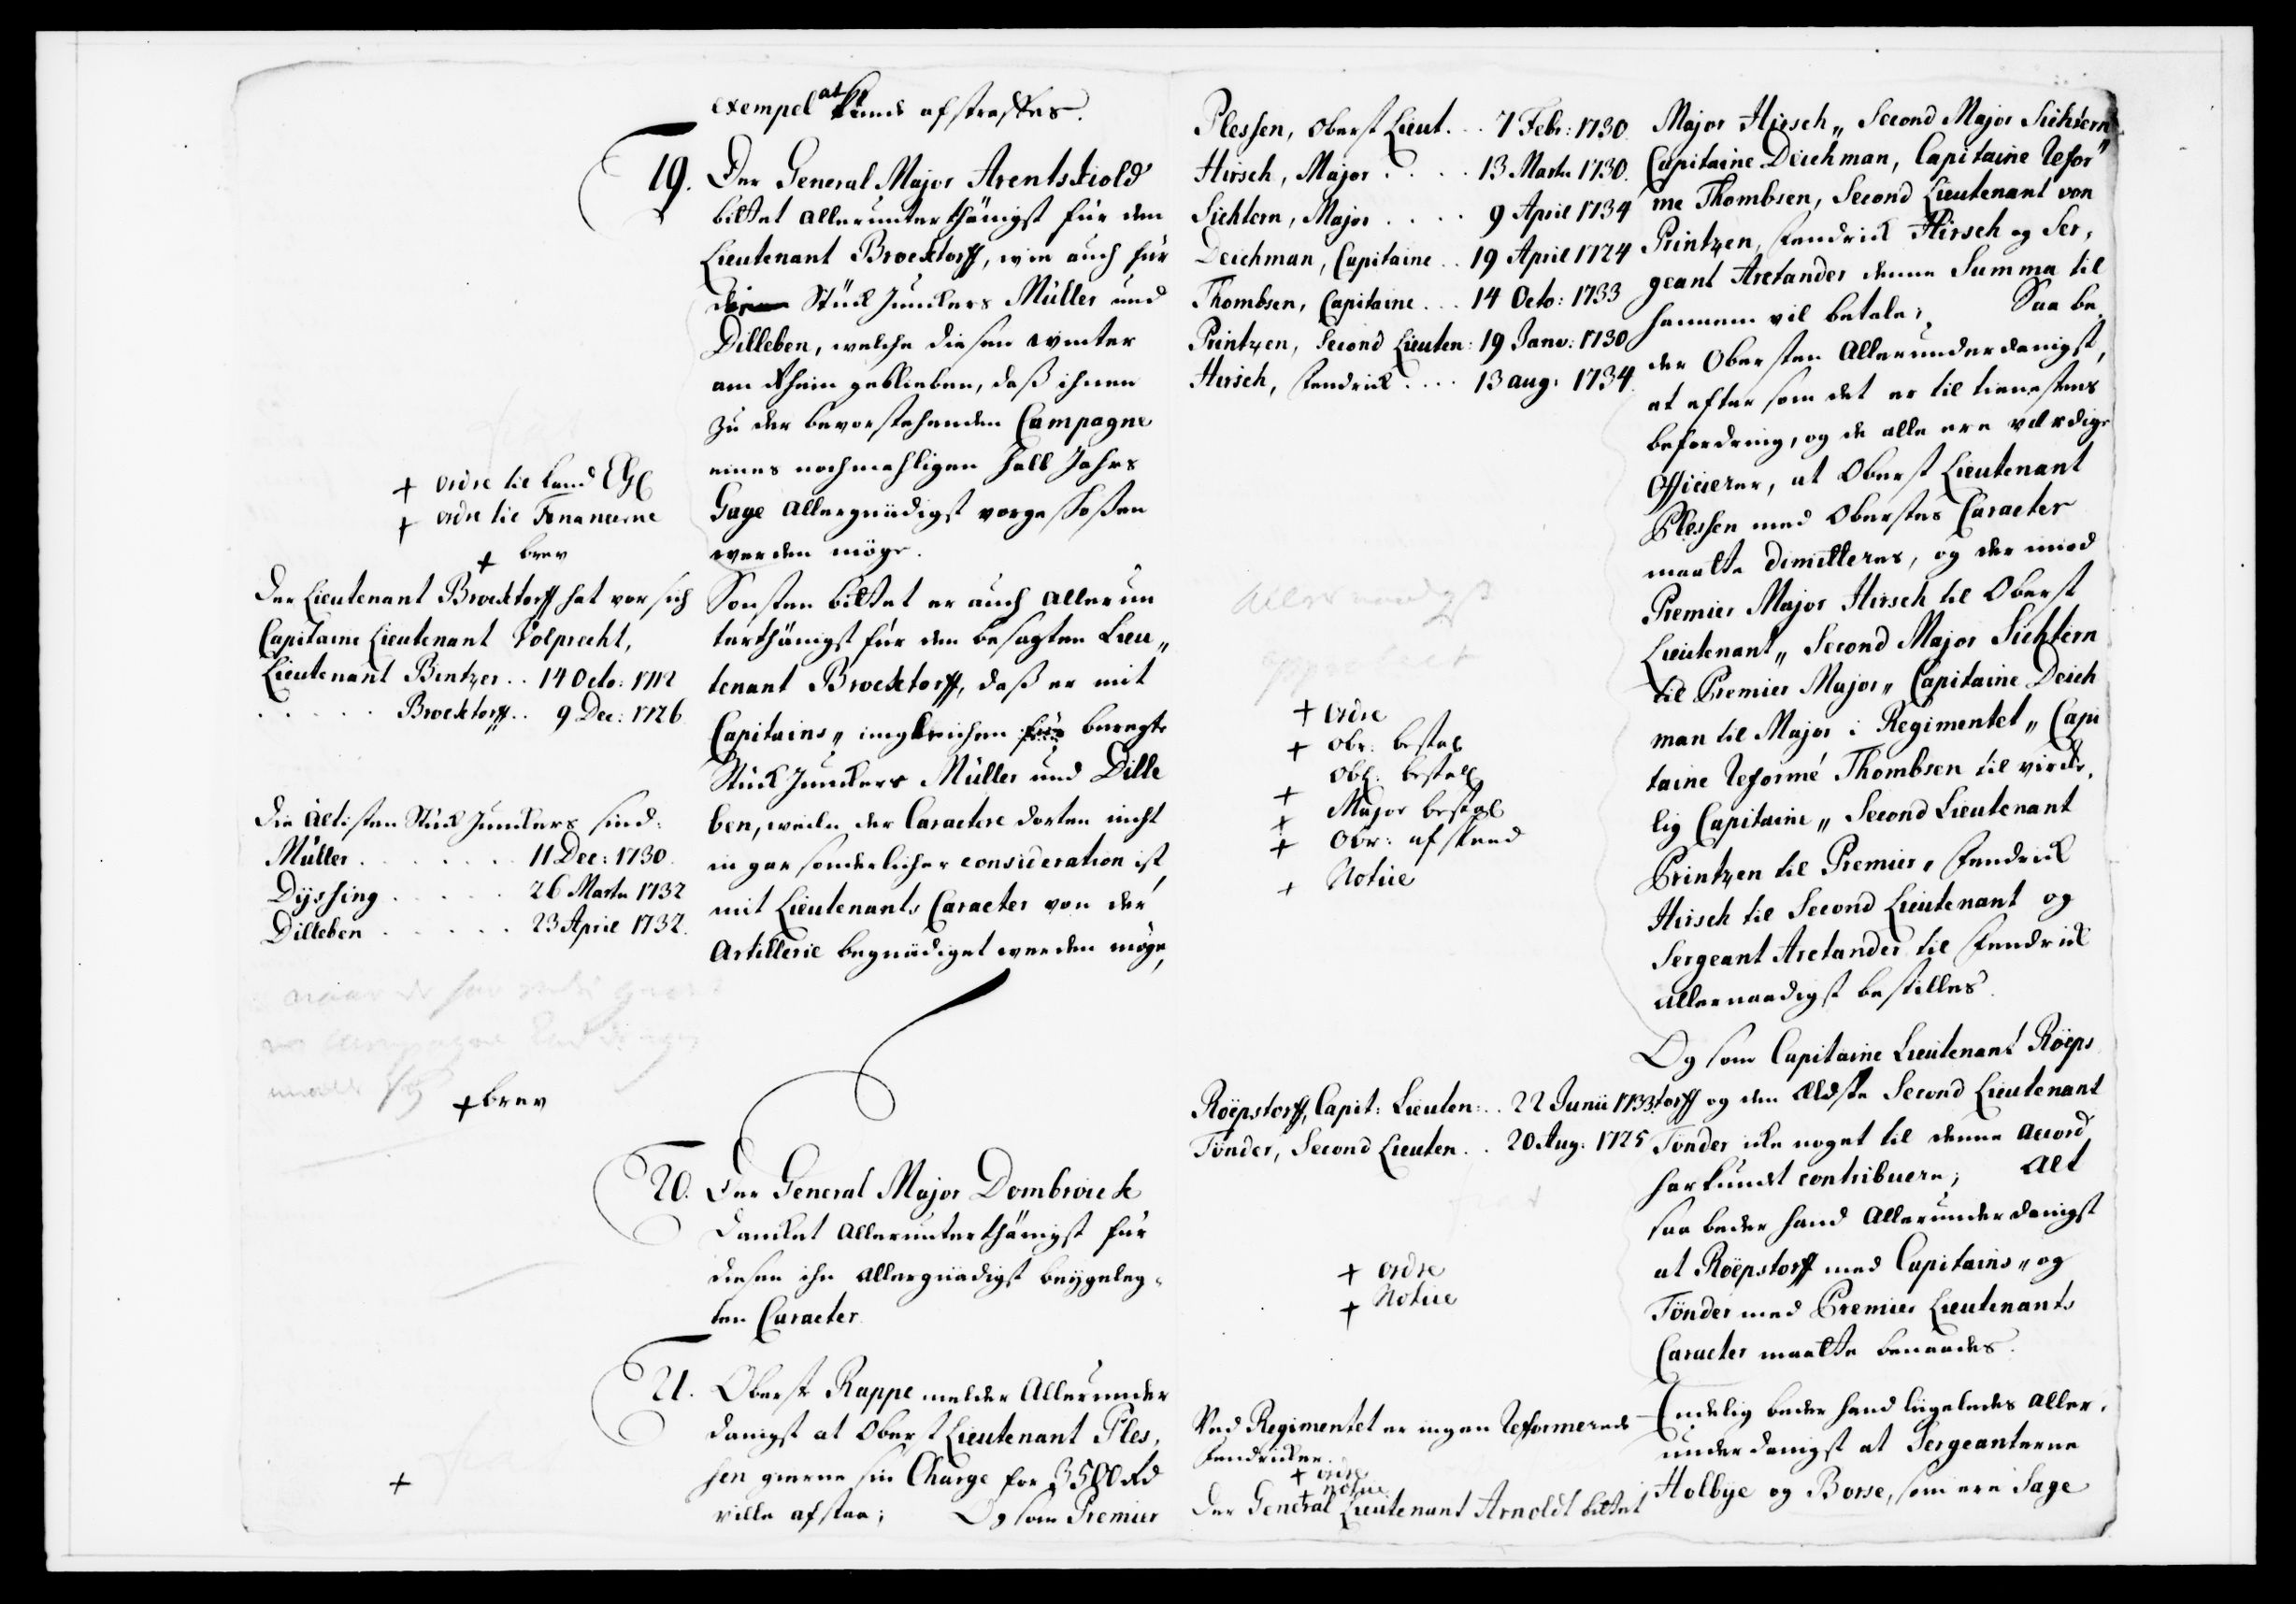 exempel at kunde afstraffes.
19. Der General Major Arentskiold
bittet allerunterthänigst für den
Lieutenant Brocktorff, wie auch für
Stück Junckers Müller und
Dilleben, welche diesen winter
am Rhein geblieben, daß ihnen
zu der bevorstehenden Campagne
eines nochmahligen halb Jahrs
Gage allergnädigst vorgeschoßen
werden möge.
Sonsten bittet er auch allerun
terthänigst für den besagten Lieu„
tenant Brocktorff, daß er mit
Capitains„ imgleichen für beregte
Stück Junckers Müller und Dille
ben, weile der Caractere dorten nicht
in gar sonderlicher consideration ist,
mit Lieutenants Caracter von der
Artillerie begnädiget werden möge,
+ ordre til Land
+ ordre til
+ brev
Der Lieutenant Brocktorff hat vor sich
Capitaine Lieutenant Volprecht,
Lieutenant Bintzer . . 14 Octo: 1712
. . . . . Brocktorff . . 9 Dec: 1726
Die ältisten Stück Junckers sind:
Müller . . . . . . . 11 Dec: 1730.
Dyssing . . . . . 26 Marti 1732
Dilleben . . . . . 23 April 1732.
+ brev
20. Der General Major Dombroick
dancket allerunterthänigst für
diesen ihn allergnädigst beygeleg„
ten Caracter
21. Oberst Rappe melder allerunder
danigst at Oberst Lieutenant Ples„
sen gierne sin Charge for 3500 Rd
ville afstaa; Og som Premier
+
Plessen, Oberst Lieut. . . 7 Febr: 1730.
Hirsch, Major . . . . 13 Marti 1730.
Sichtern, Major . . . . 9 April 1734
Deichman, Capitaine . . 19 April 1724
Thombsen, Capitaine . . . 14 Octo: 1733
Printzen, Second Lieuten: 19 Janv: 1730
Hirsch, Fendrick . . . . 13 aug: 1734.
Allernaadigst
+ ordre
+ obr: bestal
+ obl: bestal
+ Major bestal
+ obr: afskeed
+ Notice
Röepstorff, Capit: Lieuten: . . 22 Junii 1733.
Tönder, Second Lieuten . . 20 Aug: 1725
+ ordre
+ Notice
Ved Regimentet er ingen Reformerede
Fendricker.
+ ordre
+ notice
Der General Lieutenant Arnoldt bittet
Major Hirsch„ Second Major Sichtern
Capitaine Deichman, Capitaine Refor„
me Thombsen, Second Lieutenant von
Printzen, Fendrick Hirsch og Ser„
geant Aretander denne Summa til
hannem vil betale; Saa be„
der Obersten allerunderdanigst,
at efter som det er til tienestens
befordring, og de alle ere værdige
Officierer, at Oberst Lieutenant
Plessen med Oberstes Caracter
maatte dimitteres, og der imod
Premier Major Hirsch til Oberst
Lieutenant„ Second Major Sichtern
til Premier Major„ Capitaine Deich
man til Major i Regimentet„ Capi
taine Reformé Thombsen til virke„
lig Capitaine„ Second Lieutenant
Printzen til Premier„ Fendrick
Hirsch til Second Lieutenant og
Sergeant Aretander til Fendrick
allernaadigst bestilles.
Og som Capitaine Lieutenant Röeps
torff og den ældste Second Lieutenant
Tönder icke noget til denne accord
har kundt contribuere; Alt
saa beder hand allerunderdanigst
at Röepstorff med Capitains„ og
Tönder med Premier Lieutenants
Caracter maatte benaades.
Endelig beder hand ligeledes aller„
underdanigst at Sergeanterne
Holbye og Borse, som ere Sage